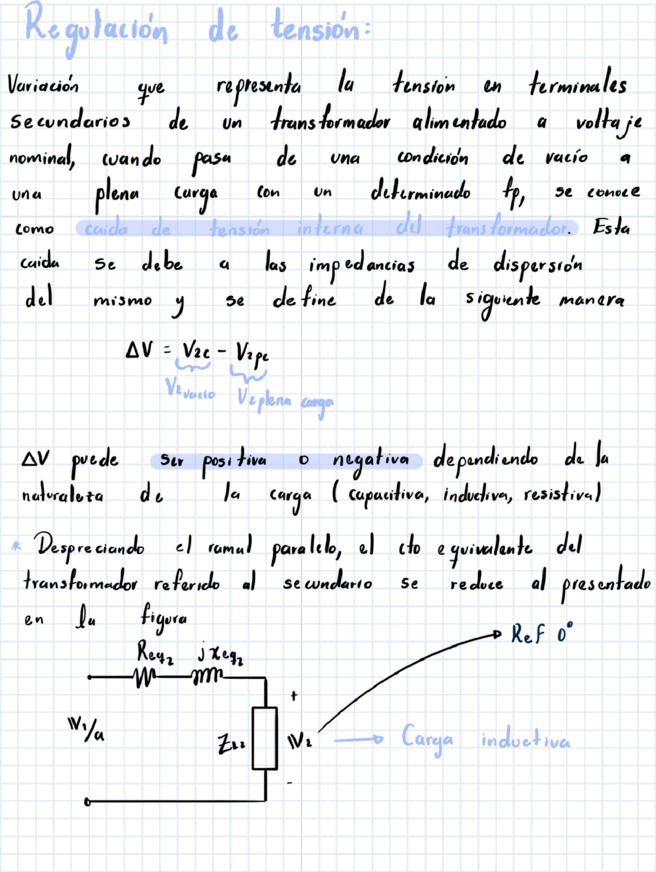 Regulación de tensión:
Variación que representa la tensión en terminales
secundarios de un transformador alimentado a voltaje
nominal, cuando pasa de una condición de vacío a
una plena carga con un determinado fp, se conoce
como caida de tensión interna del transformador. Esta
caida se debe a las impedancias de dispersión
del mismo y se define de la siguiente manera
ΔV = V2c - V2pc
V2vacio V2plena carga
ΔV puede ser positiva o negativa dependiendo de la
naturaleza de la carga (capacitiva, inductiva, resistiva)
* Despreciando el ramal paralelo, el cto equivalente del
transformador referido al secundario se reduce al presentado
en la figura
Ref 0°
Req2 jxeq2
+
V1/a ZL2 V2 → Carga inductiva
-